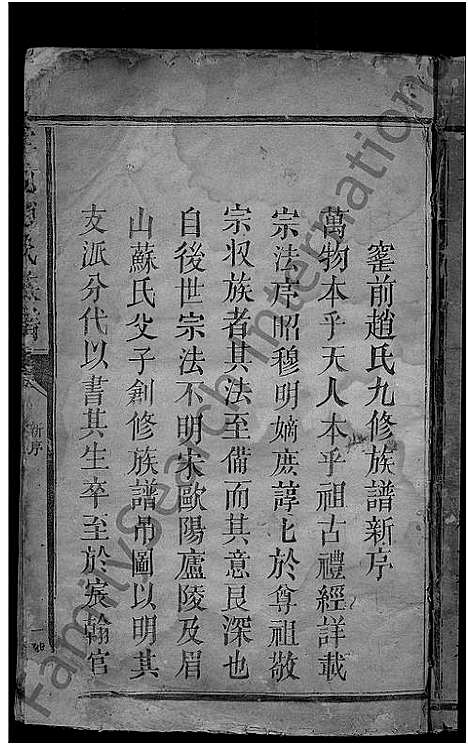 窰前趙氏九修族譜新序
萬物本乎天人本乎祖古禮經詳載
宗法序昭穆明嫡庶諄匕於尊祖敬
宗収族者其法至備而其意良深也
自後世宗法不明宋歐陽廬陵及眉
山蘇氏父子創修族譜吊圖以明其
支派分代以書其生卒至於宸翰官
新序
一
FamilySearch International